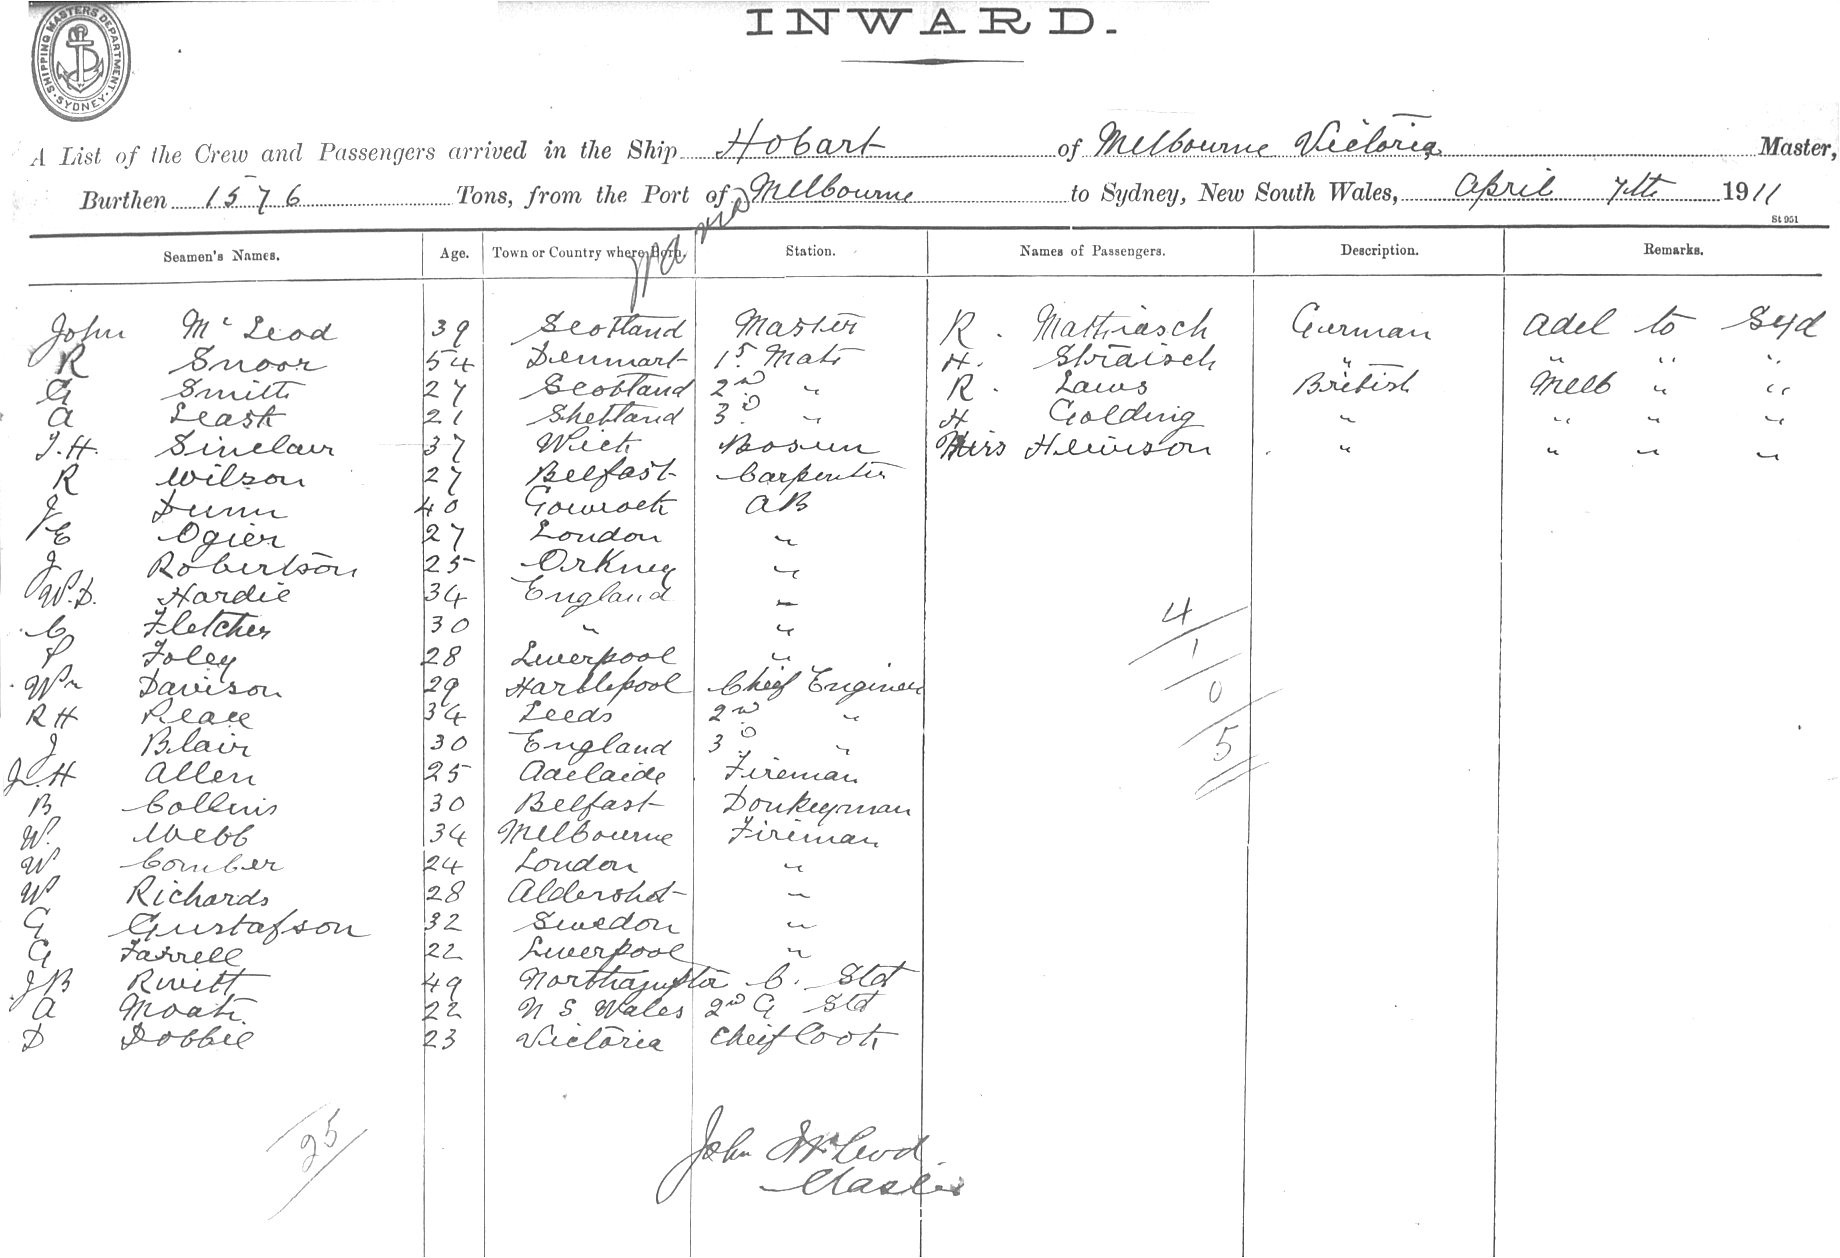 INWARD.
SHIPPING MASTERS DEPARTMENT. SYDNEY
A List of the Crew and Passengers arrived in the Ship Hobart of Melbourne Victoria Master,
Burthen 1576 Tons, from the Port of Melbourne to Sydney, New South Wales, April 7th 1911
St 951
Seamen's Names. Age. Town or Country where Born. Station. Names of Passengers. Description. Remarks.
John McLeod 39 Scotland Master R. Mattiasch German Adel to Syd
R Snoor 54 Denmark 1st Mate H. Straisch " " " "
G Smith 27 Scotland 2nd " R. Laws British Melb " "
A Leask 21 Shetland 3rd " H Golding " " " "
J.H. Sinclair 37 Wick Bosun Miss Hewison " " " "
R Wilson 27 Belfast Carpenter
J Dunn 40 Gourock AB
E Ogier 27 London "
J Robertson 25 Orkney "
W.D. Hardie 34 England "
C Fletcher 30 " "
P Foley 28 Liverpool "
Wm Davison 29 Hartlepool Chief Engineer
RH Peace 34 Leeds 2nd "
J Blair 30 England 3rd "
J.H Allen 25 Adelaide Fireman
B Collins 30 Belfast Donkeyman
W. Webb 34 Melbourne Fireman
W Comber 24 London "
W Richards 28 Aldershot "
G Gustafson 32 Sweden "
G Farrell 22 Liverpool "
JB 49 C. Std
A Moate 22 N S Wales 2nd G Std
D Dobbie 23 Victoria Chief Cook
4
1
0
5
25
John McLeod
Master